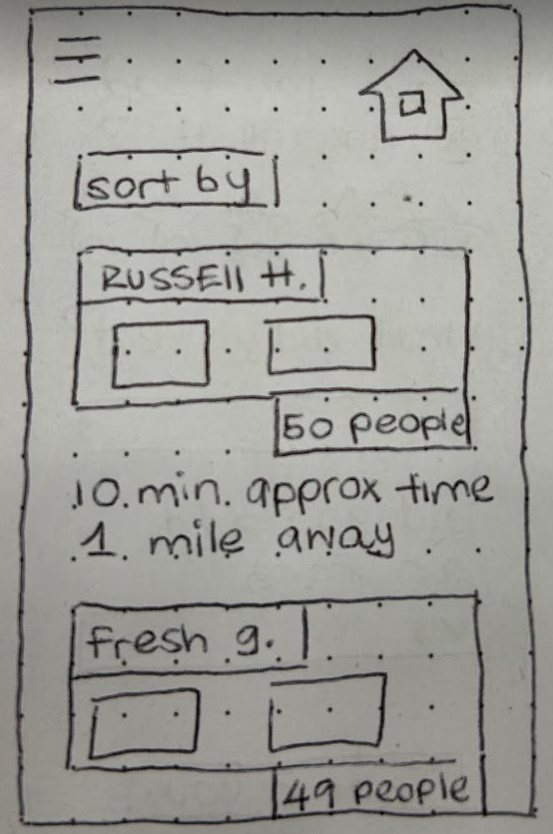 sort by
RUSSEll H.
50 people
10 min. approx time
1 mile away
fresh g.
49 people